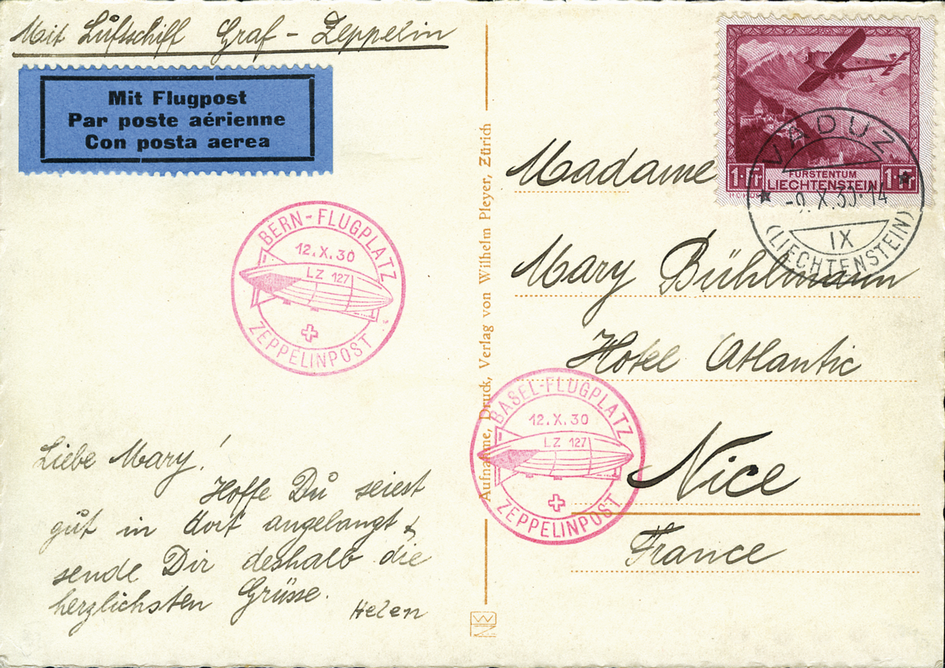 Mit Luftschiff Graf-Zeppelin
Mit Flugpost
Par poste aérienne
Con posta aerea
BERN-FLUGPLATZ
12.X.30
LZ 127
ZEPPELINPOST
Liebe Mary!
Hoffe Du seiest
gut in dort angelangt &
sende Dir deshalb die
herzlichsten Grüsse.
Helen
Aufnahme, Druck, Verlag von Wilhelm Pleyer, Zürich
1 Fr
FÜRSTENTUM
LIECHTENSTEIN
1 Fr
VADUZ
-9.X.30-14
IX
(LIECHTENSTEIN)
Madame
Mary Bühlmann
Hotel Atlantic
Nice
France
BASEL-FLUGPLATZ
12.X.30
LZ 127
ZEPPELINPOST